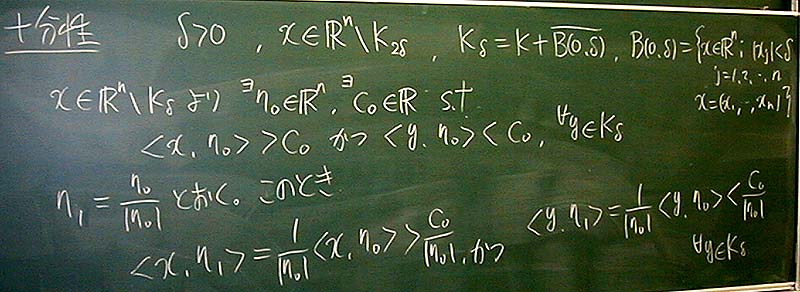 十分性 δ>0, x∈ℝⁿ\K₂δ, Kδ=K+\overline{B(0,δ)}, B(0,δ)={x∈ℝⁿ; |xⱼ|<δ
j=1,2,…,n
x=(x₁,…,xₙ)}
x∈ℝⁿ\Kδ より ∃η₀∈ℝⁿ, ∃C₀∈ℝ s.t.
<x,η₀> > C₀ かつ <y,η₀> < C₀, ∀y∈Kδ
η₁=η₀/|η₀| とおく。このとき
<x,η₁>=1/|η₀|<x,η₀> > C₀/|η₀|, かつ
<y,η₁>=1/|η₀|<y,η₀> < C₀/|η₀|
∀y∈Kδ